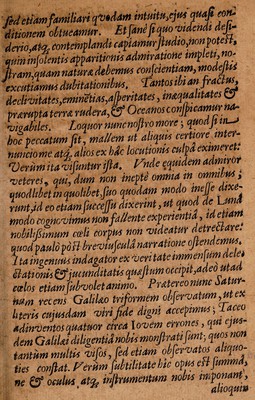 sed etiam familiari quodam intuitu, ejus quasi con-
ditionem obtueamur. Et sanè si quo videndi desi-
derio, atq, contemplandi capiamur studio, non potest,
quin insolentis apparitionis admiratione impleti, no-
stram, quam naturæ debemus conscientiam, modestis
excutiamus dubitationibus. Tantos ibi an fractus,
declivitates, eminẽtias, asperitates, inæqualitates &
prærupta terræ rudera, & Oceanos conspicamur na-
vigabiles. Loquor nunc nostro more; quod si in
hoc peccatum sit, mallem ut aliquis certiore inter-
nuncio me atq, alios ex hâc locutionis culpâ eximeret.
Verùm ita visuntur ista. Unde equidem admiror
veteres, qui, dum non ineptè omnia in omnibus;
quodlibet in quolibet, suo quodam modo inesse dixe-
runt, id eo etiam successu dixerint, ut quod de Luna
modo cognovimus non fallente experientiâ, id etiam
nobilissimum cœli corpus non videatur detrectare:
quod paulò pòst breviusculâ narratione ostendemus.
Ita ingenuus indagator ex veritate immensum dele-
ctationis & jucunditatis quæstum occipit, adeò utad
cœlos etiam subvolet animo. Prætereo nunc Satur-
num recens Galilæo triformem observatum, ut ex
literis cujusdam viri fide digni accepimus; Taceo
adinventos quatuor circa Iovem errones, qui ejus-
dem Galilæi diligentiâ nobis monstrati sunt; quos non
tantùm multis visos, sed etiam observatos aliquo-
ties constat. Verùm subtilitate hîc opus est summâ,
ne & oculus atq, instrumentum nobis imponant,
alioquin